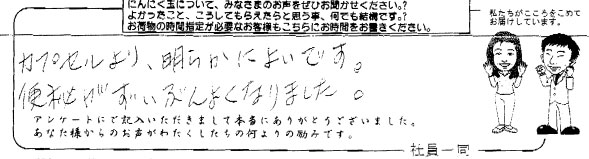 にんにく玉について、みなさまのお声をぜひお聞かせください。?
よかったこと、こうしてもらえたらと思う事、何でも結構です。?
お荷物の時間指定が必要なお客様もこちらにお時間をお書きください。
私たちがこころをこめて
お届けしています。
カプセルより、明らかによいです。
便秘がずいぶんよくなりました。
アンケートにご記入いただきまして本当にありがとうございました。
あなた様からのお声がわたくしたちの何よりの励みです。
社員一同